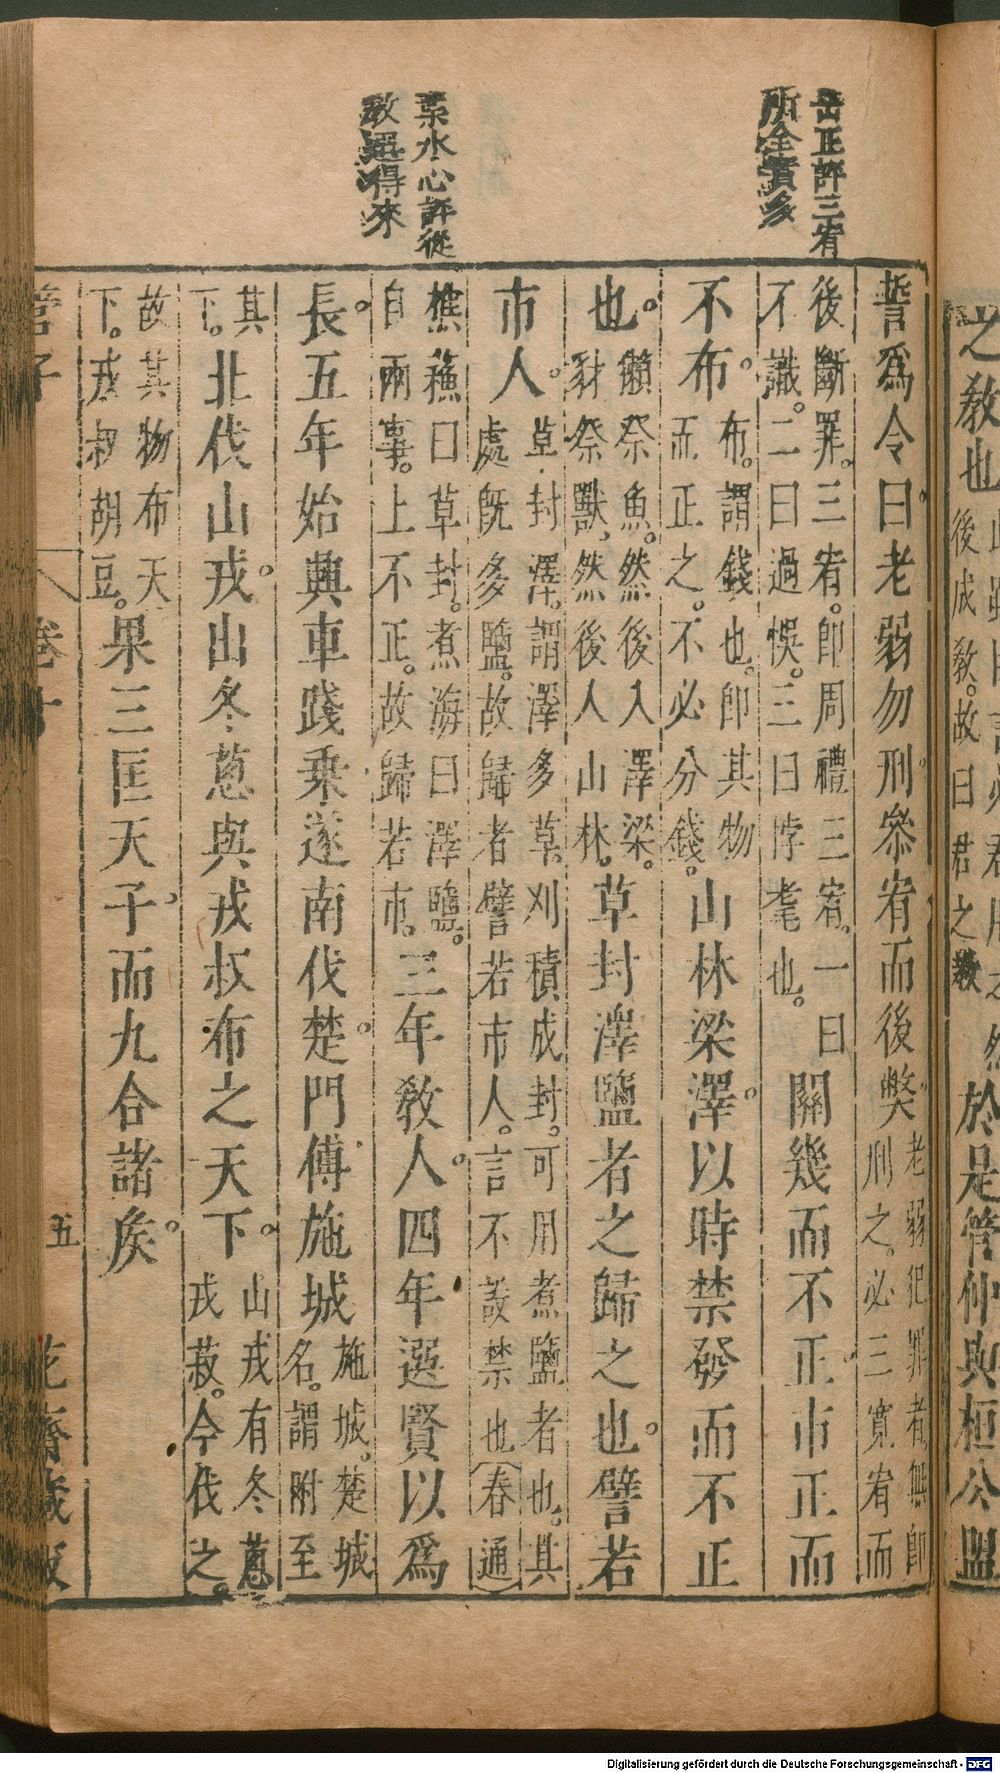 之教也
後成教。故曰君之教
於是管仲與桓公盟
岳正評三宥
所全實多
葉水心評從
教選得來
誓爲令曰老弱勿刑參宥而後獘
老弱犯罪者無卽
刑之。必三寬宥而
後斷罪。三宥。卽周禮三宥。一曰
不識。二曰過悞。三曰悖耄也。
關幾而不正市正而
不布。
布。謂錢也。卽其物
而正之。不必分錢。
山林梁澤。以時禁發而不正
也。
獺祭魚。然後入澤梁。
豺祭獸。然後入山林。
草封澤鹽者之歸之也。譬若
市人。
草封澤。謂澤多草。刈積成封。可用煮鹽者也。其
處旣多鹽。故歸者譬若市人。言不設禁也（春通）
樵蘓曰草封。煮海曰澤鹽。
自兩事。上不正。故歸若市。
三年教人。四年選賢以爲
長。五年始興車踐乘遂南伐楚。門傅施城
施城。楚城
名。謂附至
其
下。
北伐山戎。出冬蔥與戎叔布之天下。
山戎有冬蔥
戎菽。今伐之。
故其物布天
下。戎叔胡豆。
果三匡天子。而九合諸矦。
管子
卷十
五
花齋藏板
Digitalisierung gefördert durch die Deutsche Forschungsgemeinschaft - DFG